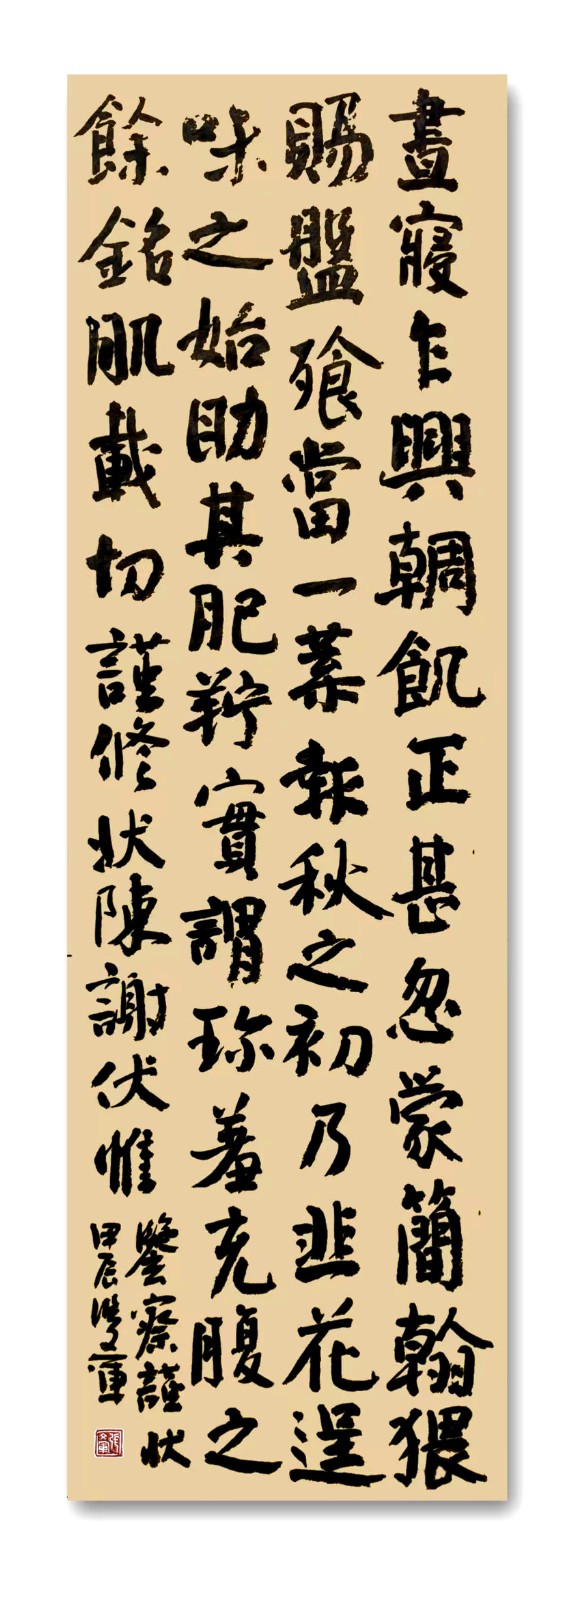 晝寢乍興輖飢正甚忽蒙簡翰猥
賜盤飧當一葉報秋之初乃韭花逞
味之始助其肥羜實謂珍羞充腹之
餘銘肌載切謹修狀陳謝伏惟
鑒察謹狀
甲辰